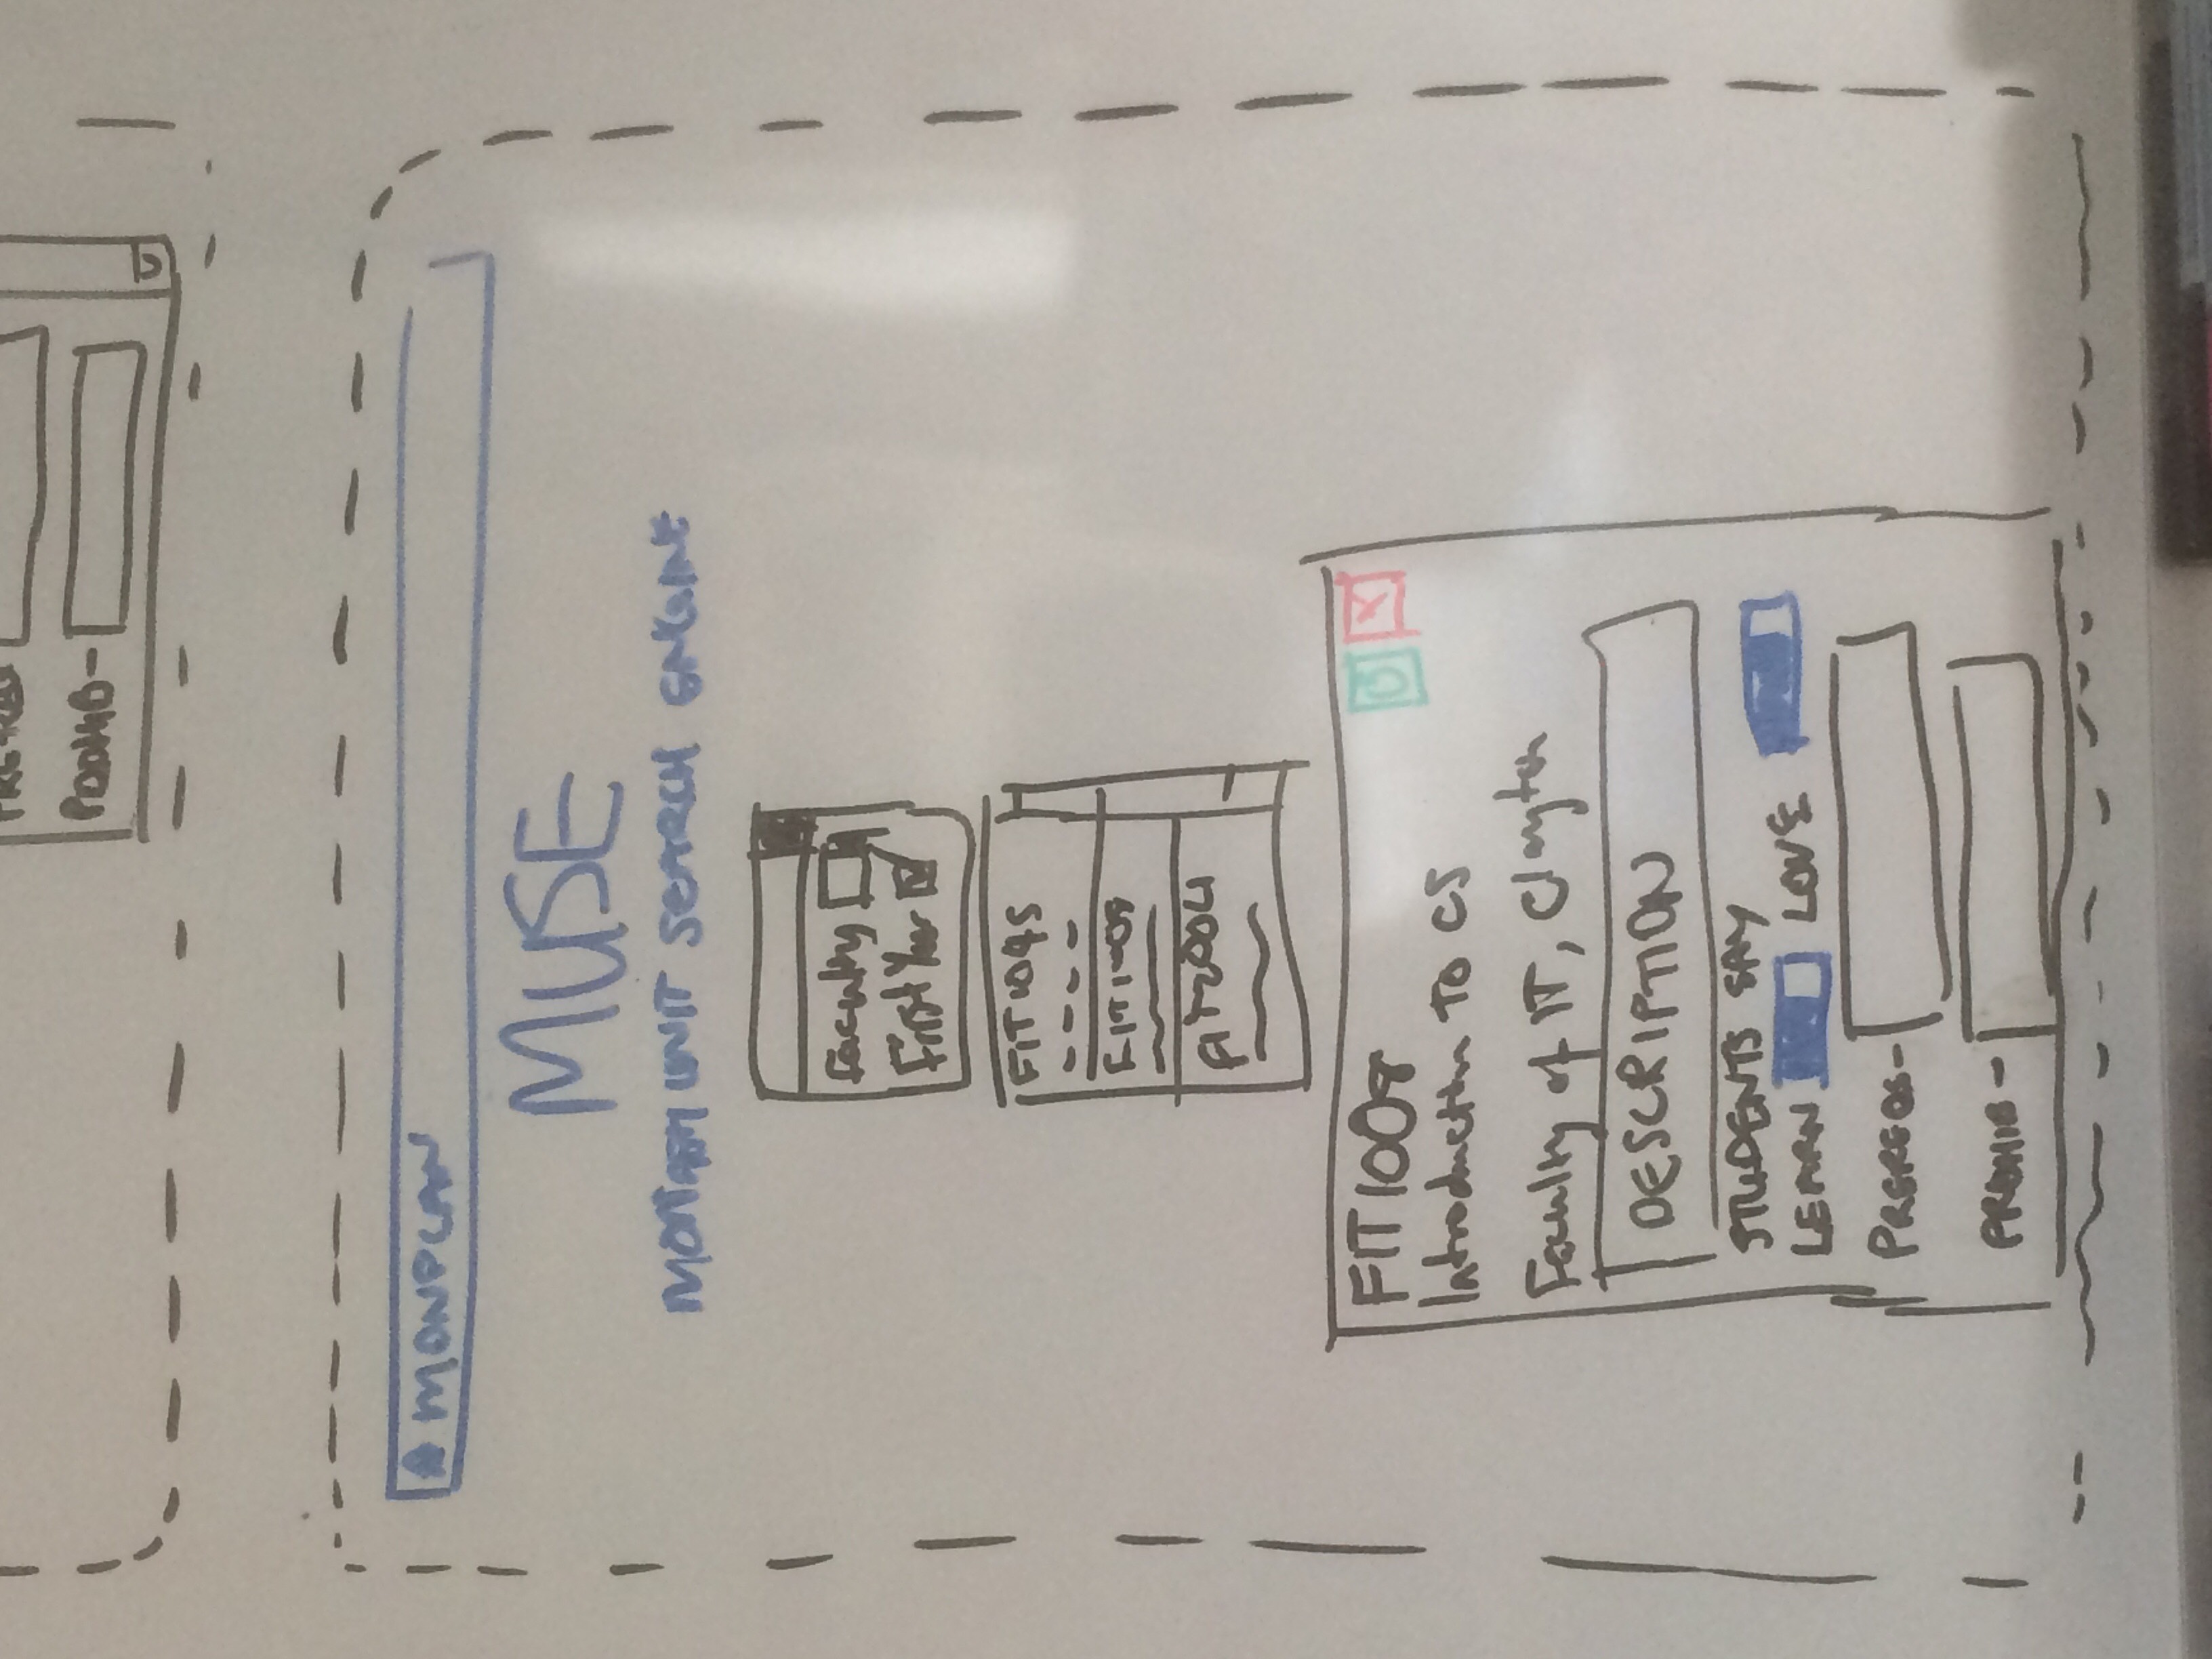 PROHIB-
MONPLAN
MUSE
MONASH UNIT SEARCH ENGINE
Faculty
First Year
FIT1045
FIT1008
FIT2004
FIT1008
Introduction To CS
Faculty of IT, Clayton
DESCRIPTION
STUDENTS SAY
LEARN LOVE
PREREQS-
PROHIB-